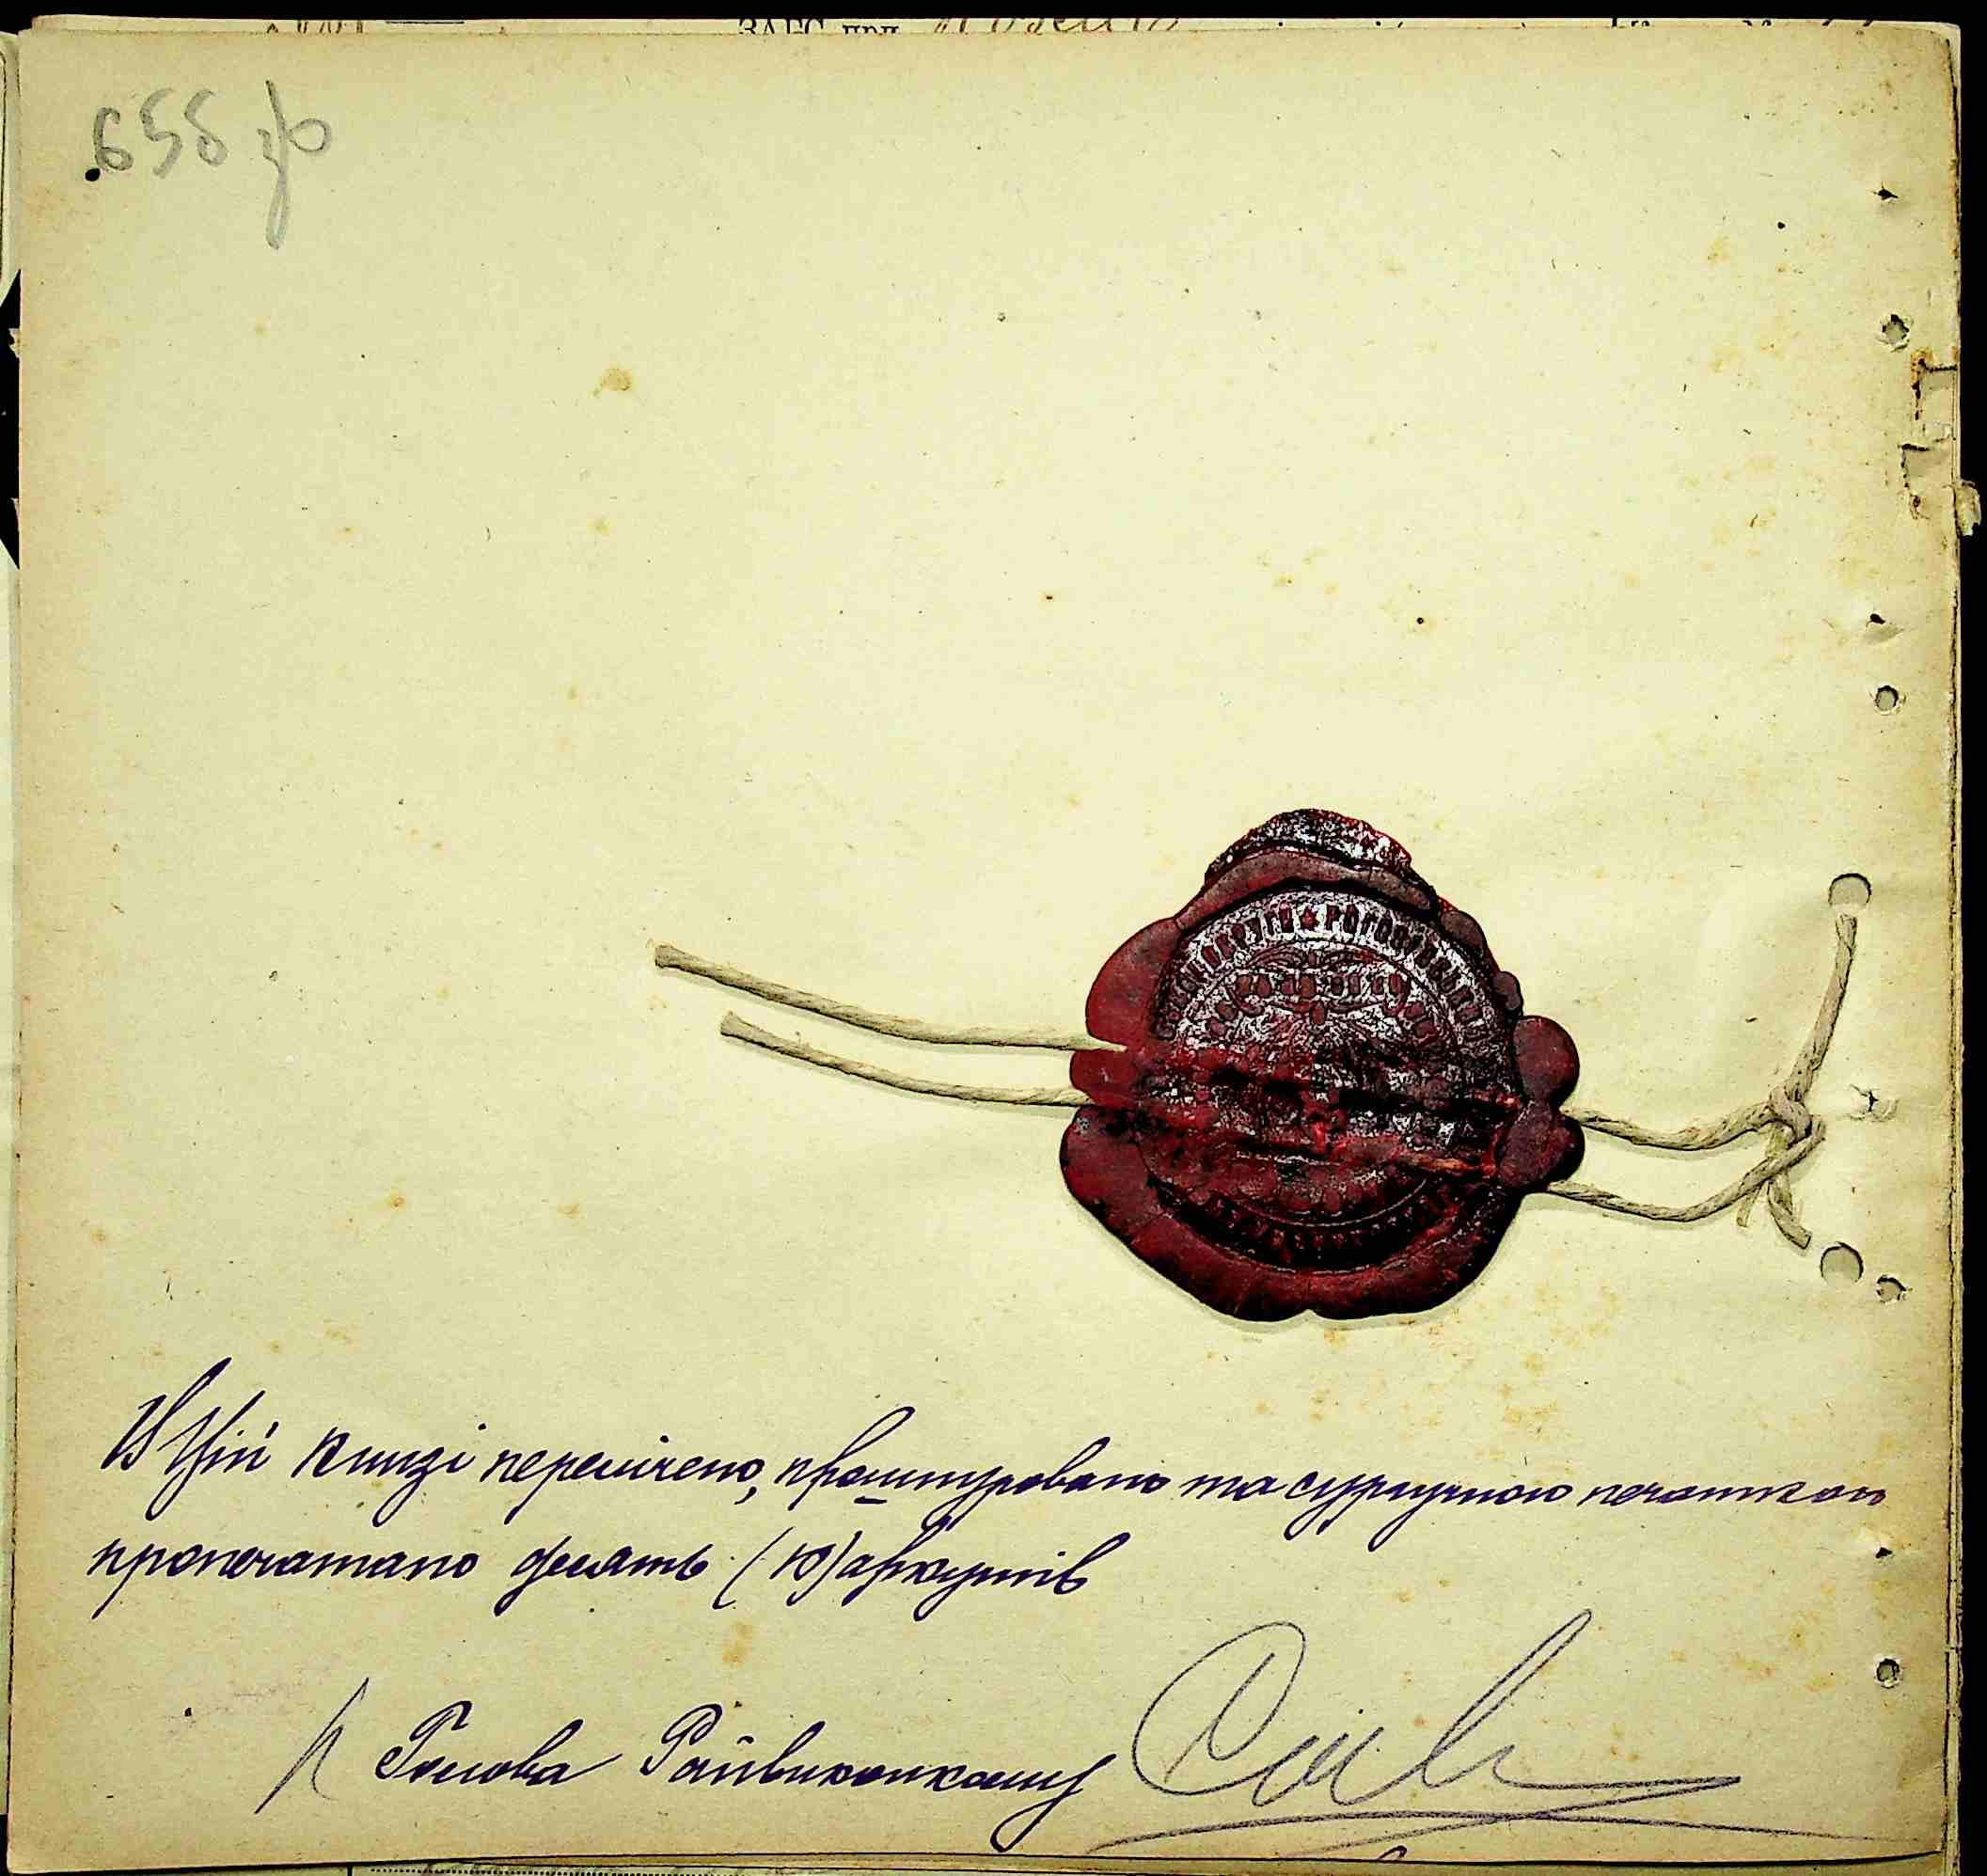 ЗАГС при
658 зв
В Цій книзі перелічено, прошнуровано та сургучною печаткою
пропечатано десять (10) аркушів
Голова Райвиконкому